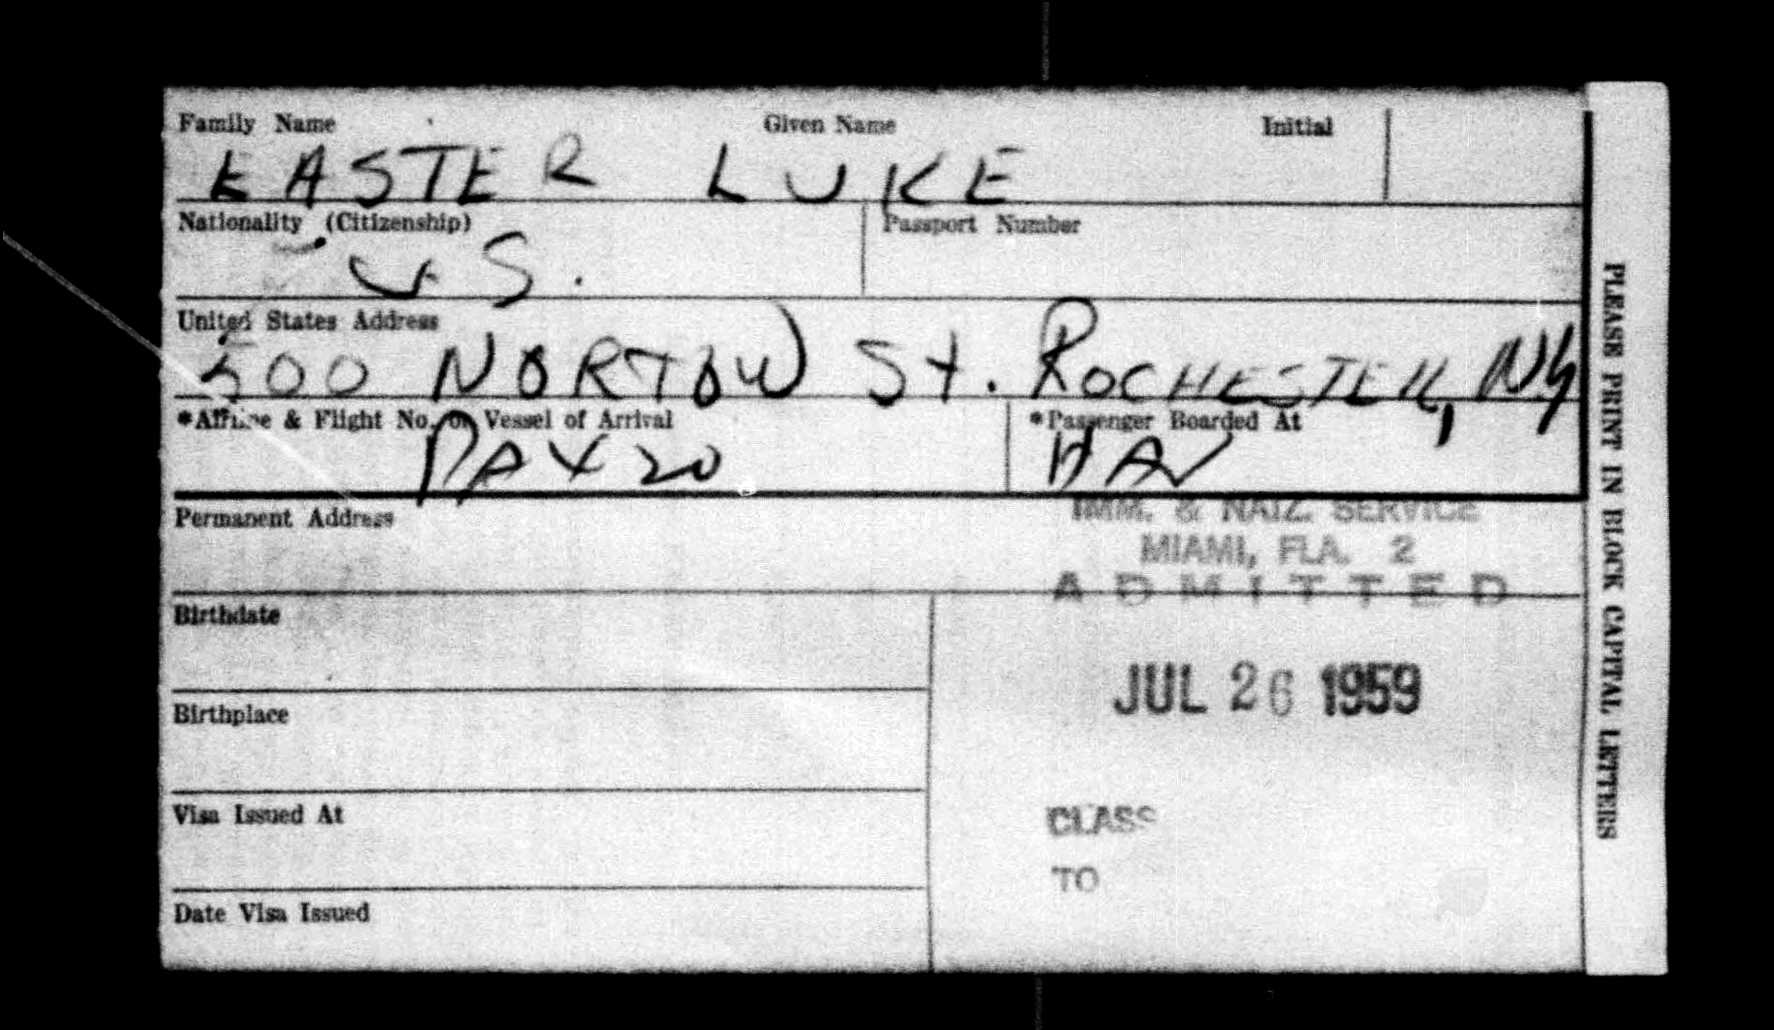 Family Name Given Name Initial
EASTER LUKE
Nationality (Citizenship) Passport Number
U S.
United States Address
500 NORTON St. ROCHESTER, NY
*Airline & Flight No. or Vessel of Arrival *Passenger Boarded At
PAX 20 HAV
Permanent Address
IMM. & NATZ. SERVICE
MIAMI, FLA. 2
ADMITTED
Birthdate
JUL 26 1959
Birthplace
Visa Issued At
CLASS
TO
Date Visa Issued
PLEASE PRINT IN BLOCK CAPITAL LETTERS